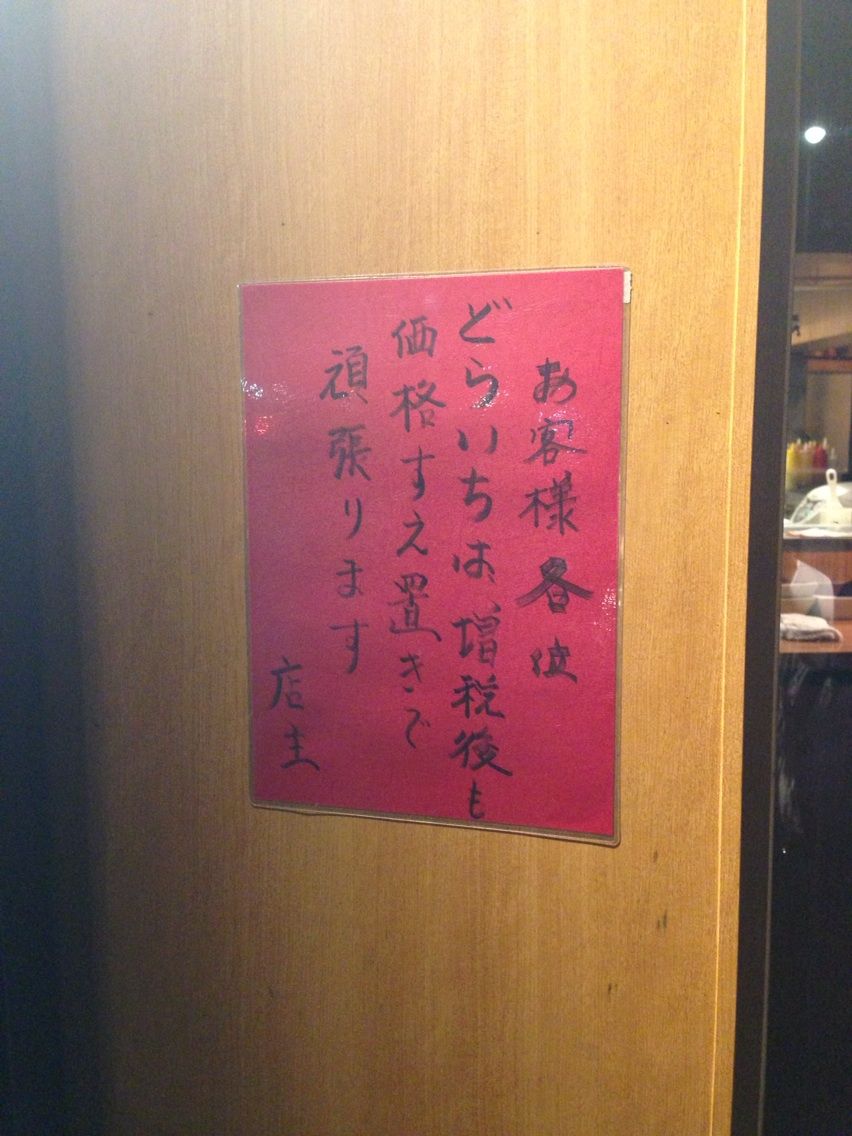 お客様各位
どらいちは、増税後も
価格すえ置きで
頑張ります
店主